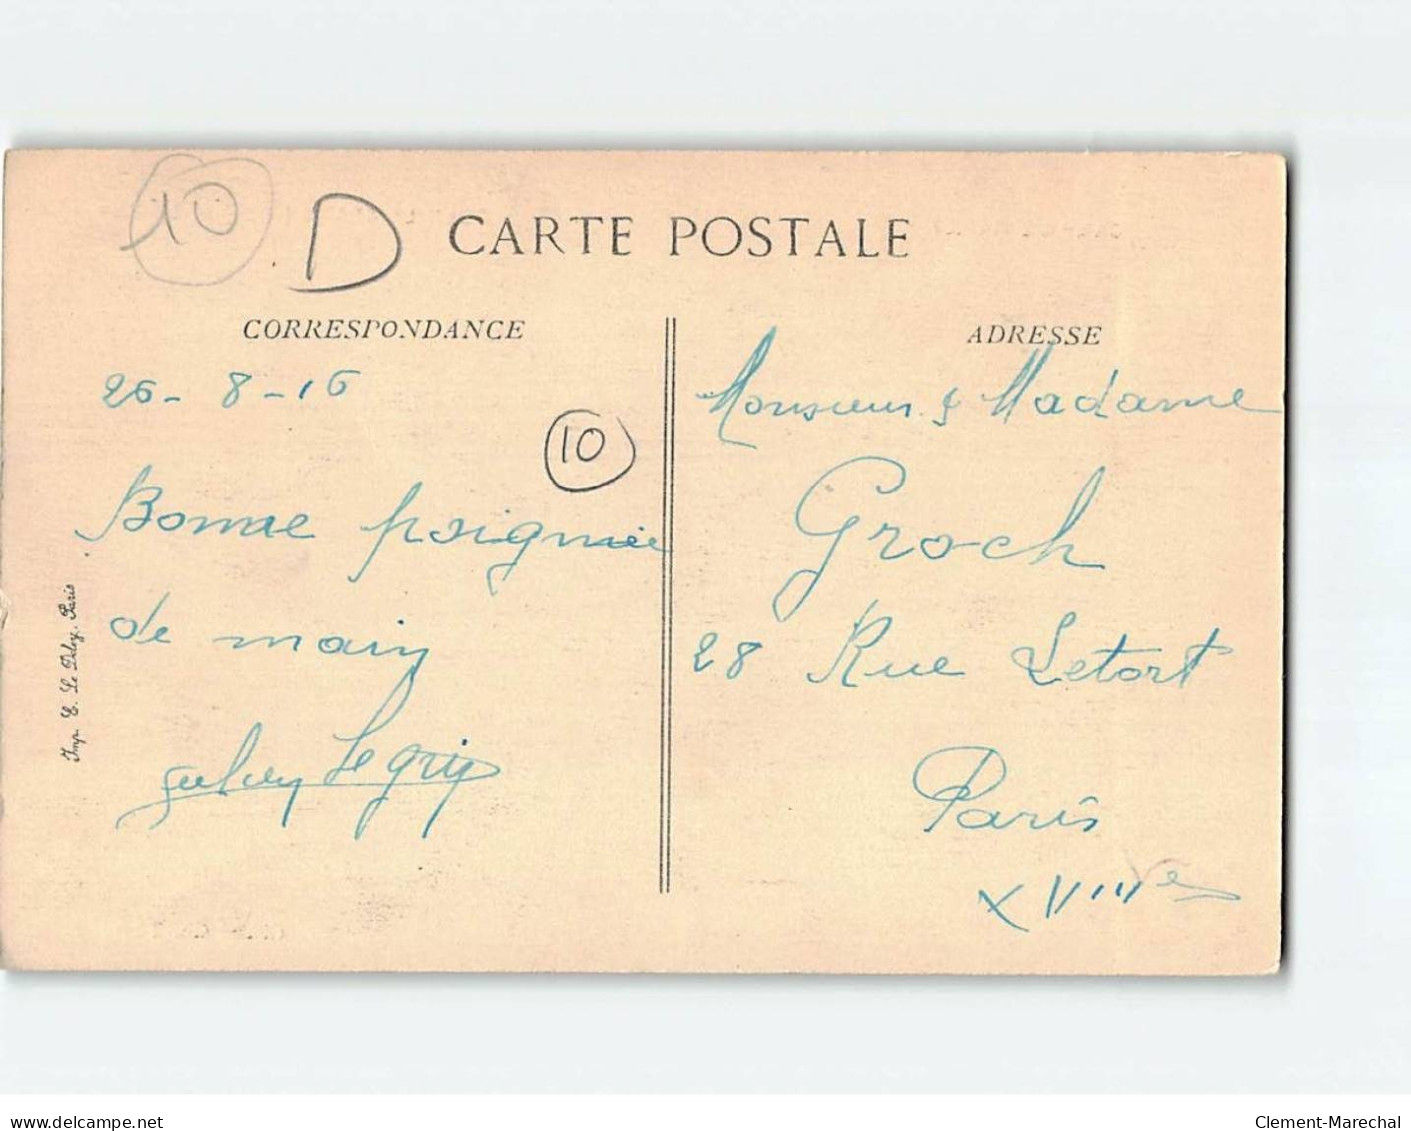 10
D
CARTE POSTALE
CORRESPONDANCE
26-8-16
10
Bonne poignée
de main
Legrip
Imp. E. Le Deley, Paris
ADRESSE
Monsieur & Madame
Groch
28 Rue Letort
Paris
XVIIIe
www.delcampe.net
Clement-Marechal